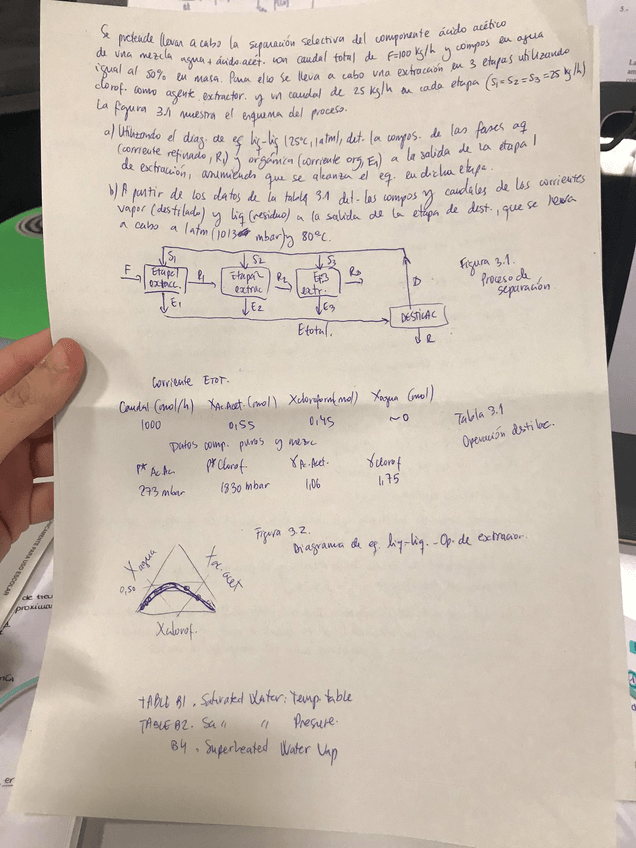 Se pretende llevar a cabo la separación selectiva del componente ácido acético
de una mezcla agua + ácido acét. con caudal total de F=100 kg/h y compos en agua
igual al 50% en masa. Para ello se lleva a cabo una extracción en 3 etapas utilizando
clorof. como agente extractor y un caudal de 25 kg/h en cada etapa (S1=S2=S3=25 kg/h)
La figura 3.1 muestra el esquema del proceso.
a) Utilizando el diag. de eq liq-liq (25ºC, 1atm), det. la compos. de las fases aq
(corriente refinado, R1) y orgánica (corriente org, E1) a la salida de la etapa 1
de extracción, asumiendo que se alcanza el eq. en dicha etapa.
b) A partir de los datos de la tabla 3.1 det. las compos y caudales de las corrientes
vapor (destilado) y liq (residuo) a la salida de la etapa de dest., que se lleva
a cabo a 1atm (1013 mbar) y 80ºC.
S1 S2 S3
F Etapa 1 extracc. R1 Etapa 2 extrac R2 E.3 extr. R3 D
E1 E2 E3 DESTILAC
Etotal. R
Figura 3.1.
Proceso de
separación
Corriente ETOT.
Caudal (mol/h) XAc.Acet. (mol) Xcloroform (mol) Xagua (mol)
1000 0,55 0,45 ~0
Tabla 3.1
Operación destilac.
Datos comp. puros y mezc
P* Ac.Ac. P* Clorof. γAc.Acet. γclorof
273 mbar 1830 mbar 1,06 1,75
Figura 3.2.
Diagrama de eq. liq-liq. - Op. de extracción.
Xagua Xac.acet
0,50
Xclorof.
TABLE B1. Saturated Water: Temp. table
TABLE B2. Sa " " Pressure.
B4. Superheated Water Vap
de
proximar
er